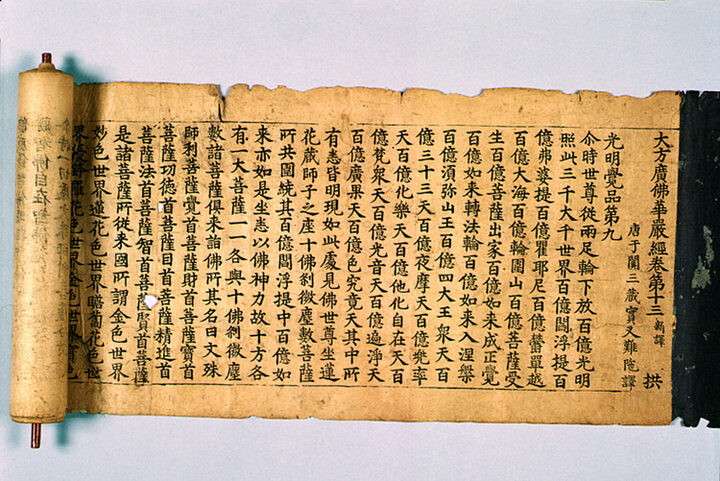 大方廣佛華嚴經卷第十三 新譯 拱
唐于闐三藏實叉難陁譯
光明覺品第九
尒時世尊從兩足輪下放百億光明
照此三千大千世界百億閻浮提百
億弗婆提百億瞿耶尼百億欝單越
百億大海百億輪圍山百億菩薩受
生百億菩薩出家百億如來成正覺
百億如來轉法輪百億如來入涅槃
百億湏弥山王百億四大王衆天百
億三十三天百億夜摩天百億兜率
天百億化樂天百億他化自在天百
億梵衆天百億光音天百億遍淨天
百億廣果天百億色究竟天其中所
有悉皆明現如此處見佛世尊坐蓮
花藏師子之座十佛剎微塵數菩薩
所共圍繞其百億閻浮提中百億如
來亦如是坐悉以佛神力故十方各
有一大菩薩一一各與十佛剎微塵
數諸菩薩俱來詣佛所其名曰文殊
師利菩薩覺首菩薩財首菩薩寶首
菩薩功德首菩薩目首菩薩精進首
菩薩法首菩薩智首菩薩賢首菩薩
是諸菩薩所從來國所謂金色世界
妙色世界蓮花色世界瞻蔔花色世
界優鉢羅花色世界金色世界寶色